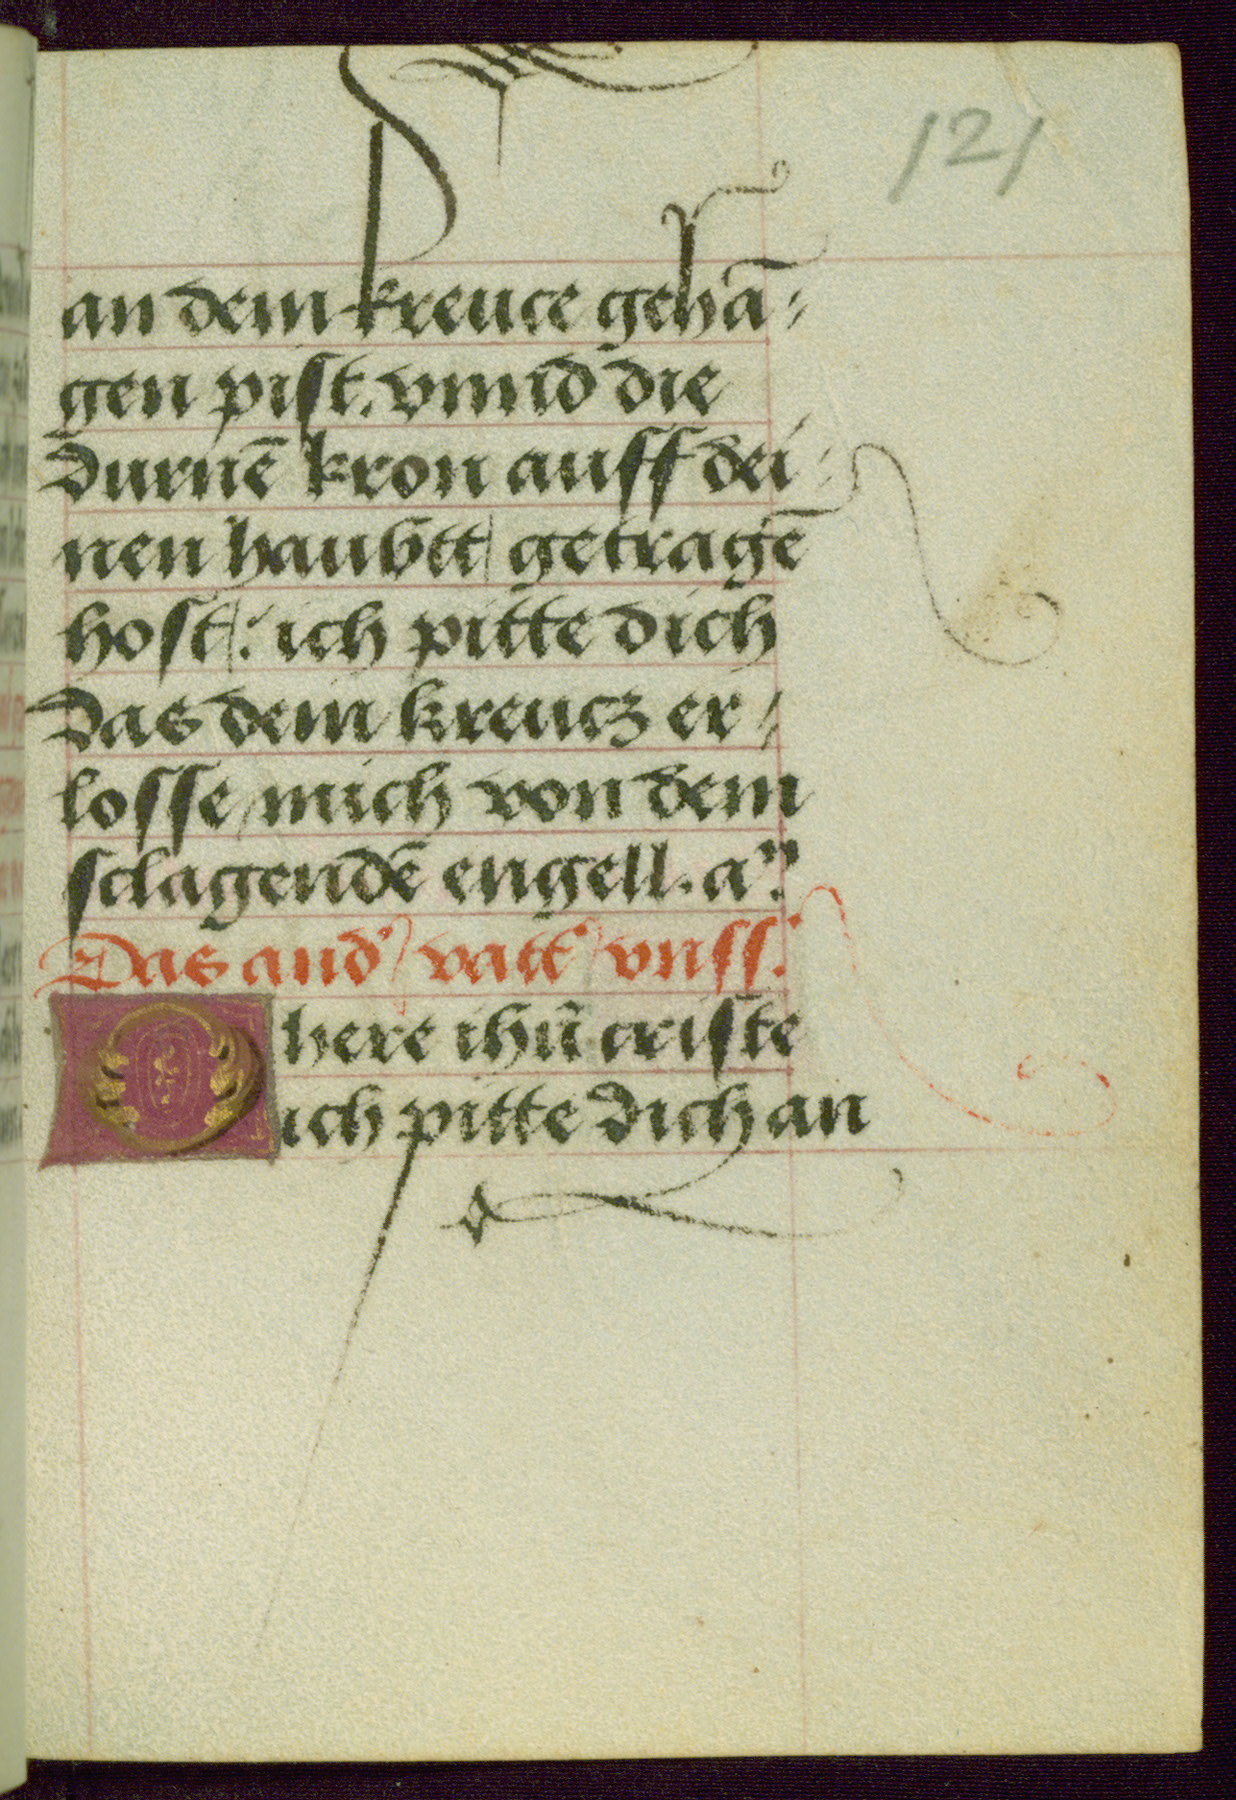 121
an dem kreuce gehā-
gen pist. vnnd die
durnē kron auff dei-
nen haubtt getragē
host: ich pitte dich
Das dein kreucz er-
losse mich von dem
sclagendē engell. a
Das and' vatt' vnss.
O here ihū criste
ich pitte dich an